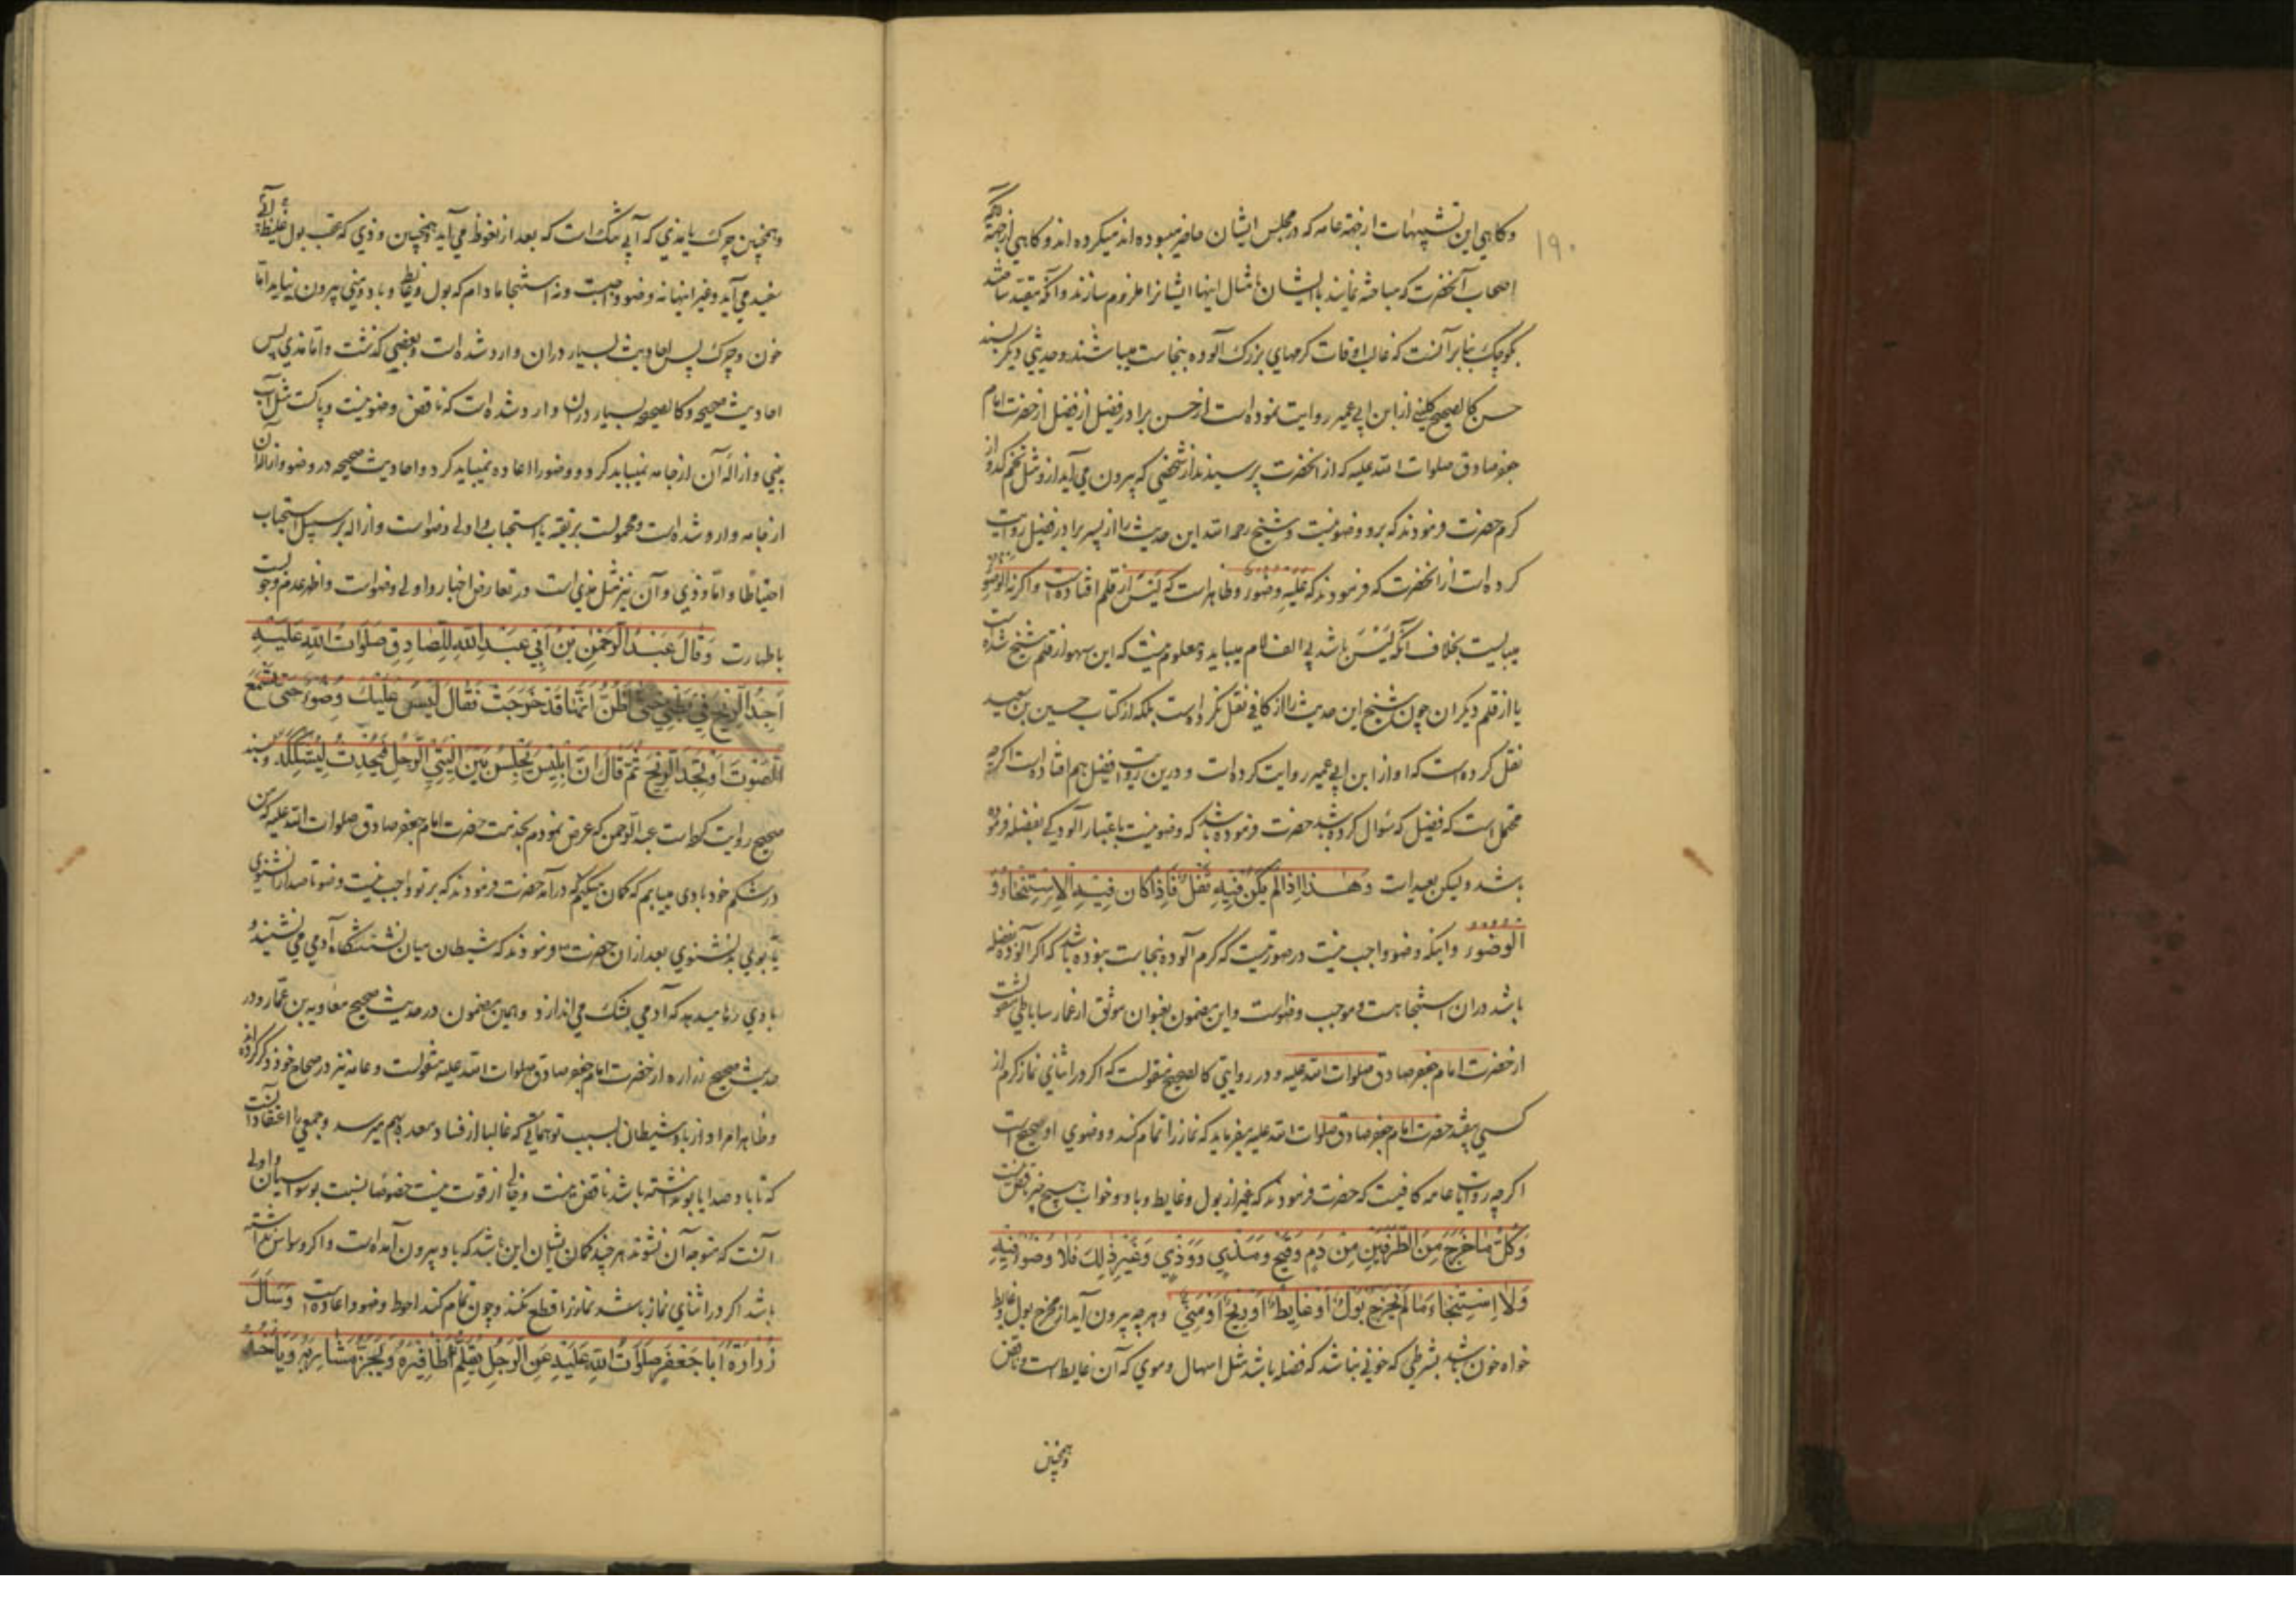 ۱۹۰
وکاهی این تشبیهات از جهة عامه که در مجلس ایشان حاضر میبوده اند میکرده اند و کاهی از جهة آنکه
اصحاب آنحضرت که مباحثه نمایند با ایشان بامثال اینها ایشانرا ملزم سازند و آنکه مقید ساخته شد
بکوچک بنا بر آنست که غالب اوقات کرمهای بزرک آلوده بنجاست میباشند و حدیثی دیکر بسند
حسن کالصحیح کلینی از ابن ابی عمیر روایت نموده است از حسن برادر فضیل از فضیل از حضرت امام
جعفر صادق صلوات الله علیه که از انحضرت پرسیدند از شخصی که بیرون می آید ازو مثل تخم کدو از
کرم حضرت فرمودند که برو وضو نیست و شیخ رحمه الله این حدیث را از پسر برادر فضیل روایت
کرده است از انحضرت که فرمودند که عَلَیْهِ وضوء و ظاهر است که لَیْسَ از قلم افتاده است و اکر نه الوضو
میبایست بخلاف آنکه لَیْسَ باشد بی الف لام میباید و معلوم نیست که این سهو از قلم شیخ شده است
یا از قلم دیکران چون شیخ این حدیث را از کافی نقل نکرده است بلکه از کتاب حسین بن سعید
نقل کرده است که او از ابن ابی عمیر روایت کرده است و درین روایت فضیل هم افتاده است اکرچه
محتمل است که فضیل که سؤال کرده باشد حضرت فرموده باشد که وضو نیست باعتبار آلودکی بفضله فرموده
باشد ولیکن بعید است وَهٰذا اِذا لَمْ یَکُنْ فیهِ ثُفْلٌ فَاِذا کانَ فیهِ الاِسْتِنْجاءُ وَ
الوضوء و اینکه وضو واجب نیست در صورتیست که کرم آلوده بنجاست نبوده باشد که اکر آلوده بفضله
باشد دران استنجا هست و موجب وضو است و این مضمون بعنوان موثق از عمار ساباطی منقولست
از حضرت امام جعفر صادق صلوات الله علیه و در روایتی کالصحیح منقولست که اکر در اثنای نماز کرم از
کسی بیفتد حضرت امام جعفر صادق صلوات الله علیه میفرماید که نماز را تمام کند و وضوی او صحیح است
اکرچه روایات عامه کافیست که حضرت فرمودند که غیر از بول و غایط و باد و خواب هیچ چیز ناقض نیست
وَکُلُّ ما خَرَجَ مِنَ الطَّرَفَیْنِ مِنْ دَمٍ وَقَیْحٍ وَمَذْیٍ وَوَذْیٍ وَغَیْرِ ذٰلِکَ فَلا وُضُوءَ فیهِ
وَلا اِسْتِنْجاءَ ما لَمْ یَخْرُجْ بَوْلٌ اَوْ غایِطٌ اَوْ ریحٌ اَوْ مَنِیٌّ و هرچه بیرون آید از مخرج بول و غایط
خواه خون باشد بشرطی که خونی نباشد که فضله باشد مثل اسهال دموی که آن غایط است و ناقض
وهمچنین
وهمچنین چرک یا مذی که آبی تنک است که بعد از نعوظ می آید وهمچنین وذی که عقب بول غلیظ آبی
سفید می آید و غیر اینها نه وضو واجبست و نه استنجا مادام که بول و غایط و باد و منی بیرون نیاید امّا
خون و چرک پس احادیث بسیار دران وارد شده است و بعضی کذشت و امّا مذی پس
احادیث صحیحه و کالصحیحه بسیار دران وارد شده است که ناقض وضو نیست و پاکست مثل آب
بینی و ازاله آن از جامه نمیباید کرد و وضو را اعاده نمیباید کرد و احادیث صحیحه در وضو و ازاله آن
از جامه وارد شده است و محمولست بر تقیه یا استحباب و اولی وضو است و ازاله بر سبیل استحباب
احتیاطا و امّا وذی و آن نیز مثل مذی است در تعارض اخبار و اولی وضو است و اظهر عدم وجوبست
با طهارت وَقالَ عَبْدُ الرَّحْمٰنِ بْنُ اَبی عَبْدِ اللّٰهِ لِلصّادِقِ صَلَواتُ اللّٰهِ عَلَیْهِ
اَجِدُ الرّیحَ فی بَطْنی حَتّیٰ اَظُنَّ اَنَّها قَدْ خَرَجَتْ فَقالَ لَیْسَ عَلَیْکَ وُضُوءٌ حَتّیٰ تَسْمَعَ
الصَّوْتَ اَوْ تَجِدَ الرّیحَ ثُمَّ قالَ اِنَّ اِبْلیسَ یَجْلِسُ بَیْنَ اَلْیَتَیِ الرَّجُلِ فَیُحْدِثُ لِیُشَکِّکَهُ و بسند
صحیح روایت کرده است عبد الرحمن که عرض نمودم بخدمت حضرت امام جعفر صادق صلوات الله علیه که من
در شکم خود بادی مییابم که کمان میکنم که در آمد حضرت فرمودند که بر تو واجب نیست وضو تا صدا را نشنوی
یا بوی بد نشنوی بعد ازان حضرت فرمودند که شیطان میان نشستنکاه آدمی می نشیند و
بادی رها میدهد که آدمی بشک می اندازد و همین مضمون در حدیث صحیح معاویه بن عمّار و در
حدیث صحیح زراره از حضرت امام جعفر صادق صلوات الله علیه منقولست و عامه نیز در صحاح خود ذکر کرده اند
و ظاهرا مراد از باد شیطان بسبب توهماتی که غالبا از فساد معده بهم میرسد و جمعی را اعتقاد آنست
که تا باد صدا یا بو نداشته باشد ناقض نیست و خالی از قوت نیست خصوصا نسبت بوسواسیان و اولی
آنست که متوجه آن نشوند هر چند کمان ایشان این باشد که باد بیرون آمده است و اکر وسواس نداشته
باشد اکر در اثنای نماز باشد نماز را قطع نکند و چون تمام کند احوط وضو و اعاده است وَسَاَلَ
زُرارَةُ اَبا جَعْفَرٍ صَلَواتُ اللّٰهِ عَلَیْهِ عَنِ الرَّجُلِ یُقَلِّمُ اَظافیرَهُ وَیَجُزُّ شارِبَهُ وَیَأخُذُ